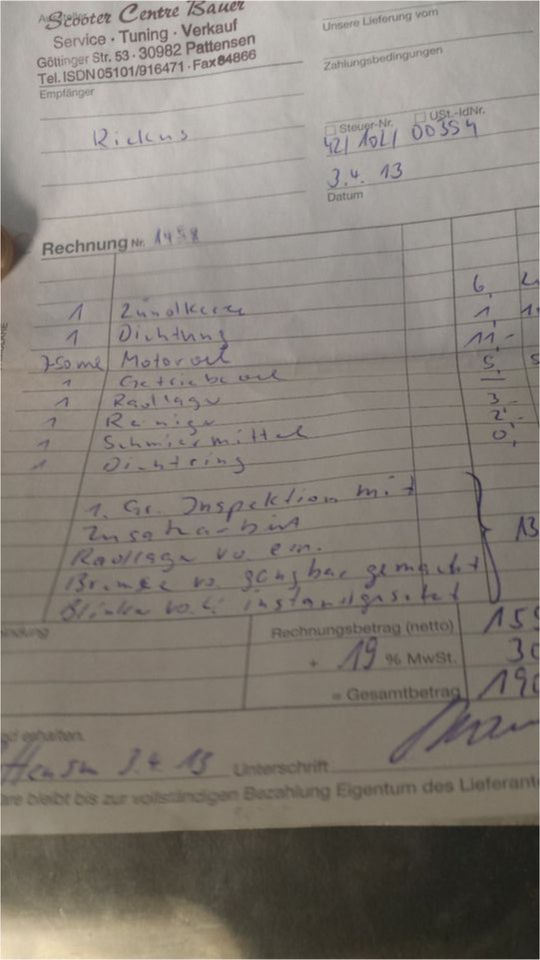 Scooter Centre Bauer
Service · Tuning · Verkauf
Göttinger Str. 53 · 30982 Pattensen
Tel. ISDN 05101/916471 · Fax 84866
Empfänger
Unsere Lieferung vom
Zahlungsbedingungen
Steuer-Nr. USt.-IdNr.
42/102/00354
3.4.13
Datum
Rechnung Nr. 1458
1 Zündkerze 6,
1 Dichtung 1,
750ml Motoroel 11,-
1 Getriebeoel 5,
1 Radlager —
1 Reiniger 3-
1 Schmiermittel 2,-
1 Dichtring 0,
1. Gr. Inspektion mit
Zusatzarbeit
Radlager vo ein. 13
Bremse vo. gangbar gemacht
Blinker vo. li instandgesetzt
Rechnungsbetrag (netto) 155
+ 19 % MwSt. 30
= Gesamtbetrag 190
erhalten.
3.4.13 Unterschrift
bleibt bis zur vollständigen Bezahlung Eigentum des Lieferant